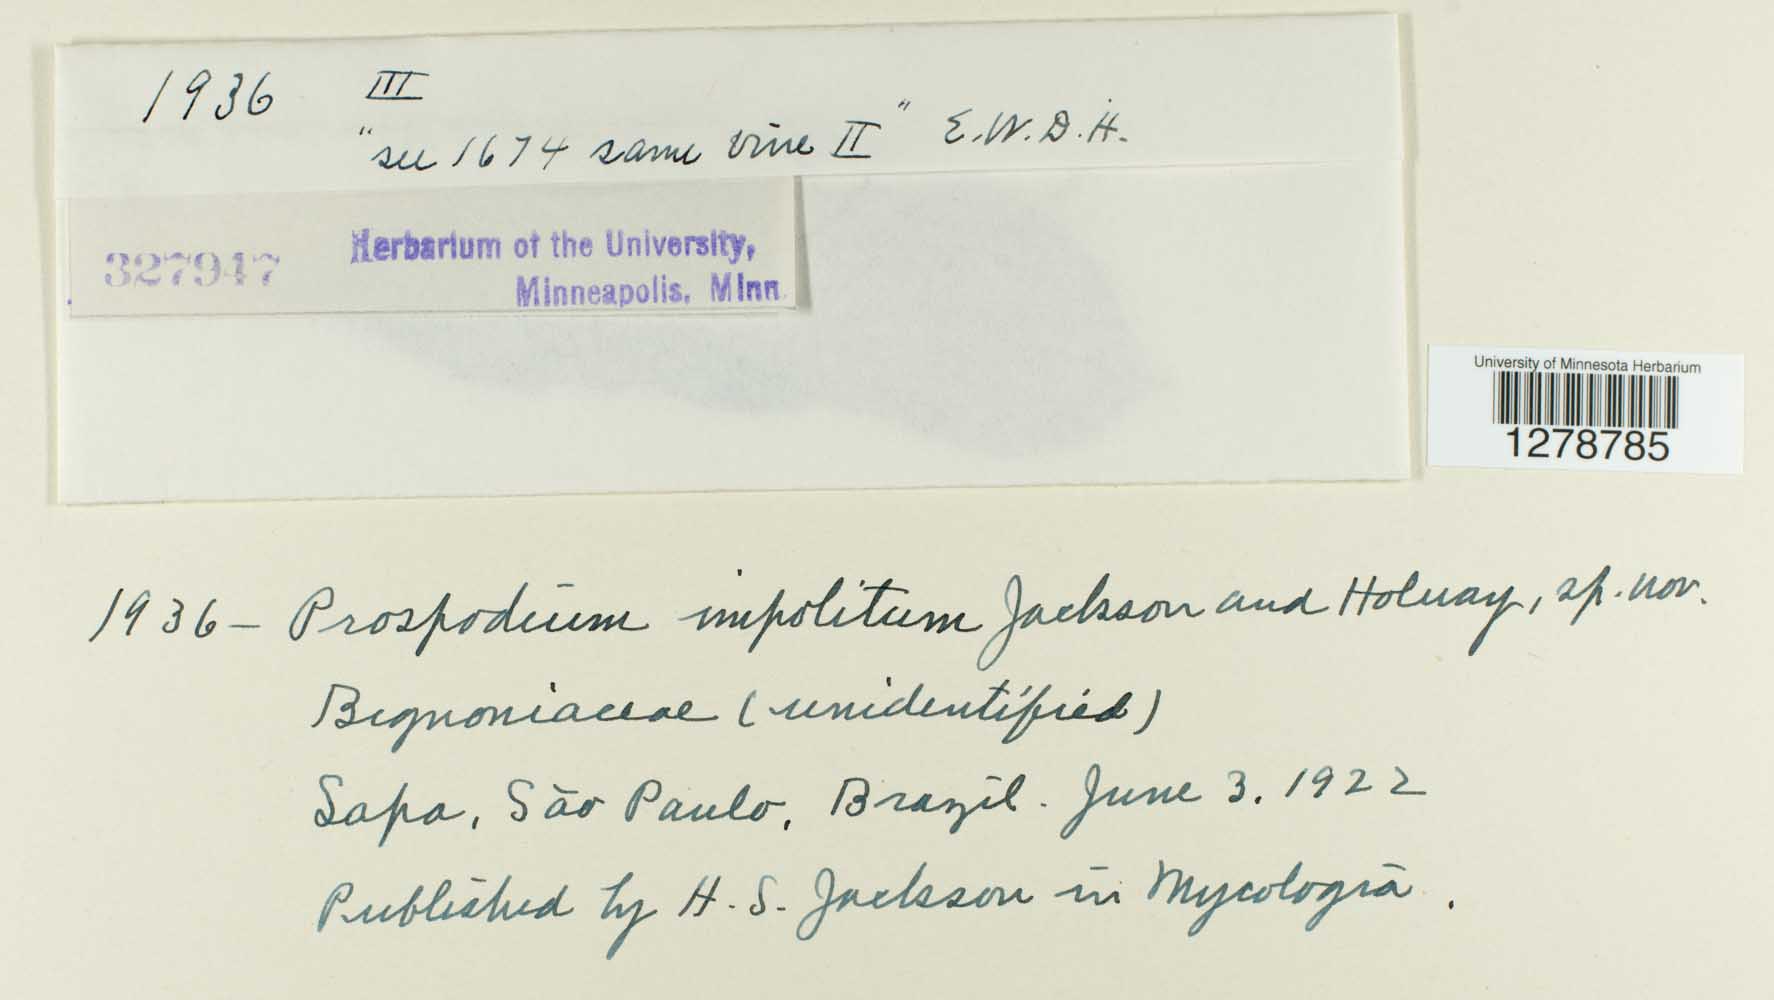 1936 III
"see 1674 same vine II" E.W.D.H.
327947 Herbarium of the University,
Minneapolis, Minn.
University of Minnesota Herbarium
1278785
1936 – Prospodium impolitum Jackson and Holway, sp. nov.
Bignoniaceae (unidentified)
Lapa, São Paulo, Brazil. June 3, 1922
Published by H. S. Jackson in Mycologia.